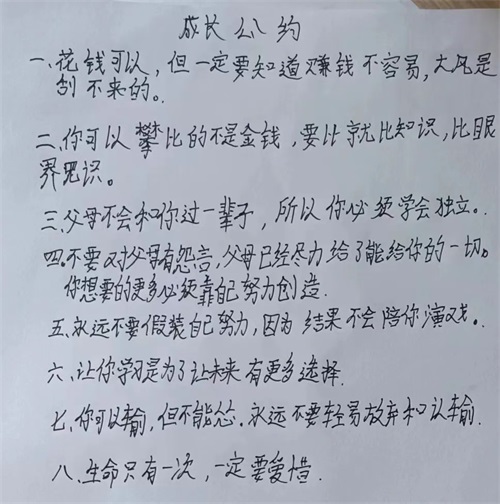 成长公约
一、花钱可以，但一定要知道赚钱不容易，大风是
刮不来的。
二、你可以攀比的不是金钱，要比就比知识，比眼
界见识。
三、父母不会和你过一辈子，所以你必须学会独立。
四、不要对父母有怨言，父母已经尽力给了能给你的一切。
你想要的更多必须靠自己努力创造.
五、永远不要假装自己努力，因为结果不会陪你演戏。
六、让你学习是为了让未来有更多选择.
七、你可以输，但不能怂，永远不要轻易放弃和认输.
八、生命只有一次，一定要爱惜.